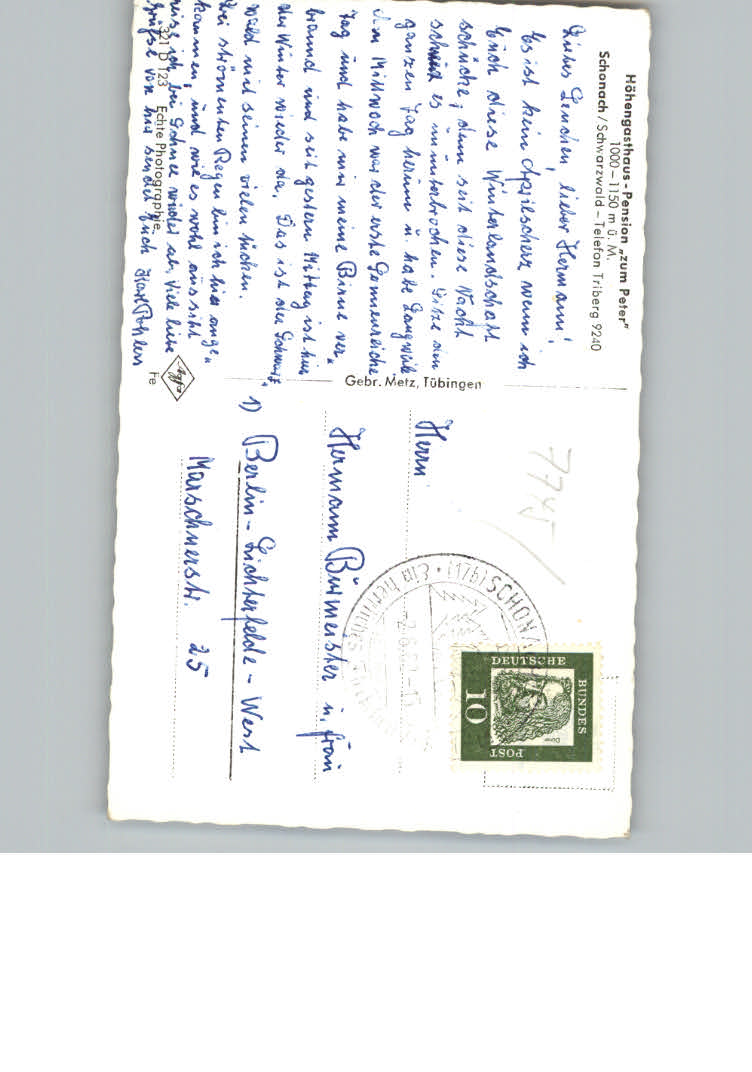 Höhengasthaus - Pension „zum Peter"
1000 – 1150 m ü. M.
Schonach / Schwarzwald – Telefon Triberg 9240
Liebes Lenchen, lieber Hermann!
Es ist kein Aprilscherz wenn ich
Euch diese Winterlandschaft
schicke, denn seit diese Nacht
schneit es ununterbrochen. Sitze den
ganzen Tag herum u. habe Langweile
Am Mittwoch war der erste Sonnenreiche
Tag und habe mir meine Birne ver„
brannd und seit gestern Mittag ist hier
der Winter wieder da. Das ist der Schwarz„
wald mit seinen vielen tücken.
Bei strömenten Regen bin ich hier ange„
kommen, und wie es wohl aussiht
reise ich bei Schnee wieder ab. Viele liebe
Grüße von hier sendet Euch Karl
321 D 123 Echte Photographie
Agfa
Fe
Gebr. Metz, Tübingen
7745/
(17b) SCHONA
Ein
DEUTSCHE
BUNDES
POST
10
Dürer
Herrn
Hermann Burmeister u. Frau
1) Berlin - Lichterfelde - West
Marschnerstr. 25